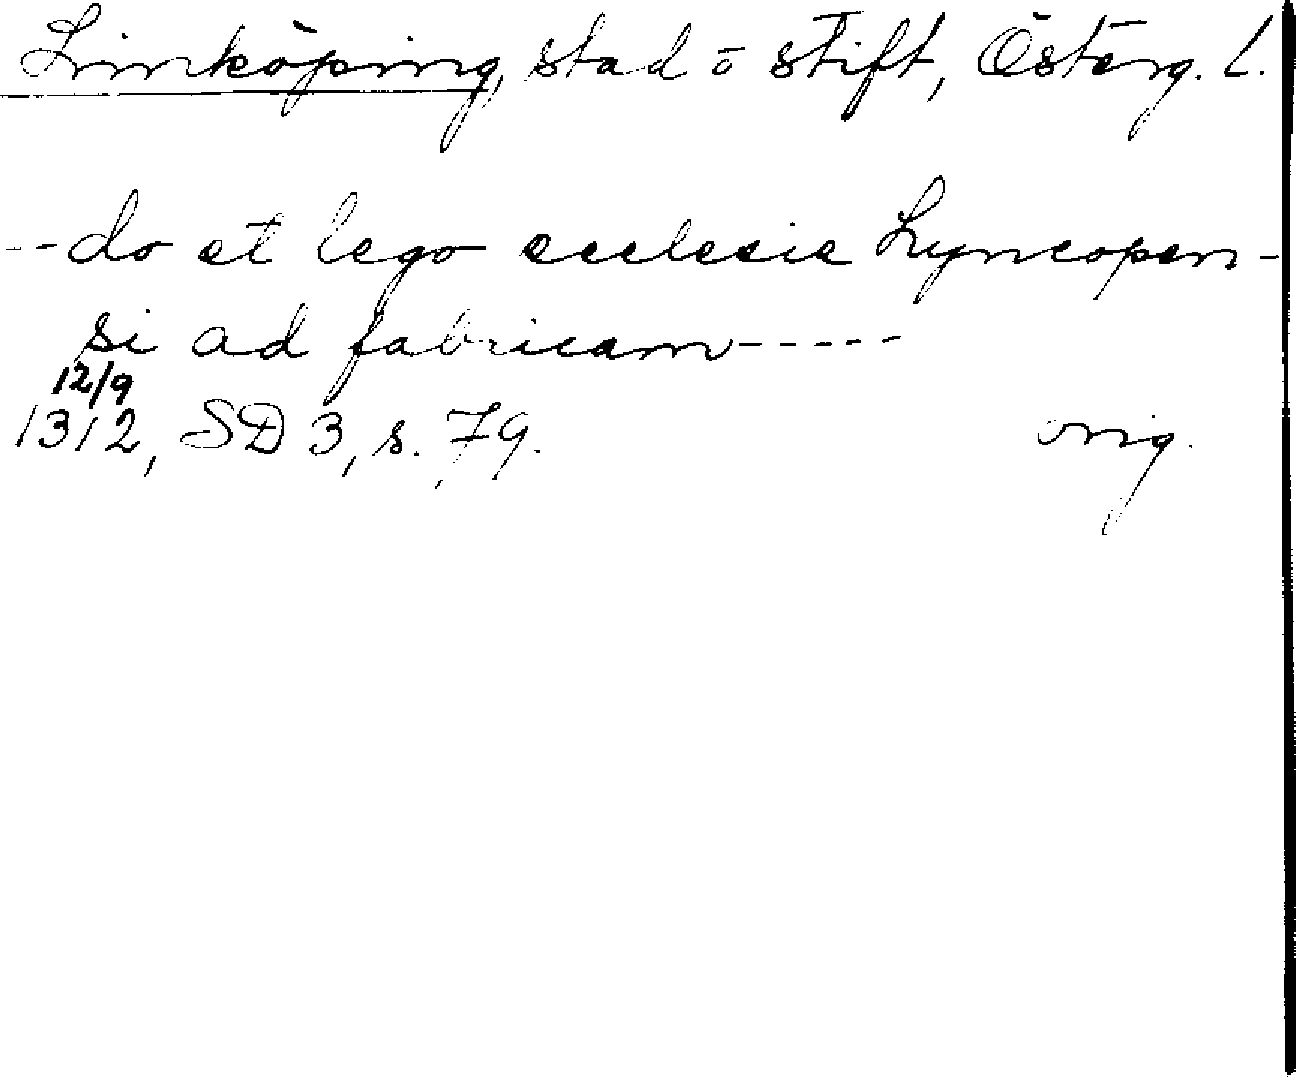 Linköping, stad o stift, Österg. L.
-- do et lego ecclesie Lyncopen-
si ad fabricam -----
12/9
1312, SD 3, s. 79.
orig.